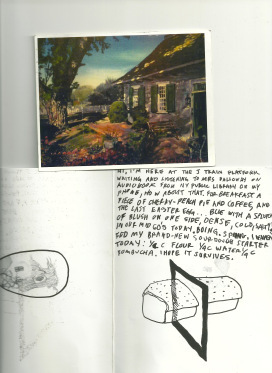 HI, I'M HERE AT THE J TRAIN PLATFORM
WRITING AND LISTENING TO MRS DALLOWAY ON
AUDIOBOOK FROM NY PUBLIC LIBRARY ON MY
PHONE, HOW ABOUT THAT. FOR BREAKFAST A
PIECE OF CHERRY-PEACH PIE AND COFFEE, AND
THE LAST EASTER EGG... BLUE WITH A
OF BLUSH ON ONE SIDE, DENSE, COLD,
IN OUR MID 60'S TODAY, BOING. SPRING. I
FED MY BRAND-NEW SOURDOUGH STARTER
TODAY: 1/4 C FLOUR 1/4 C WATER/1/4 C
KOMBUCHA. I HOPE IT SURVIVES.